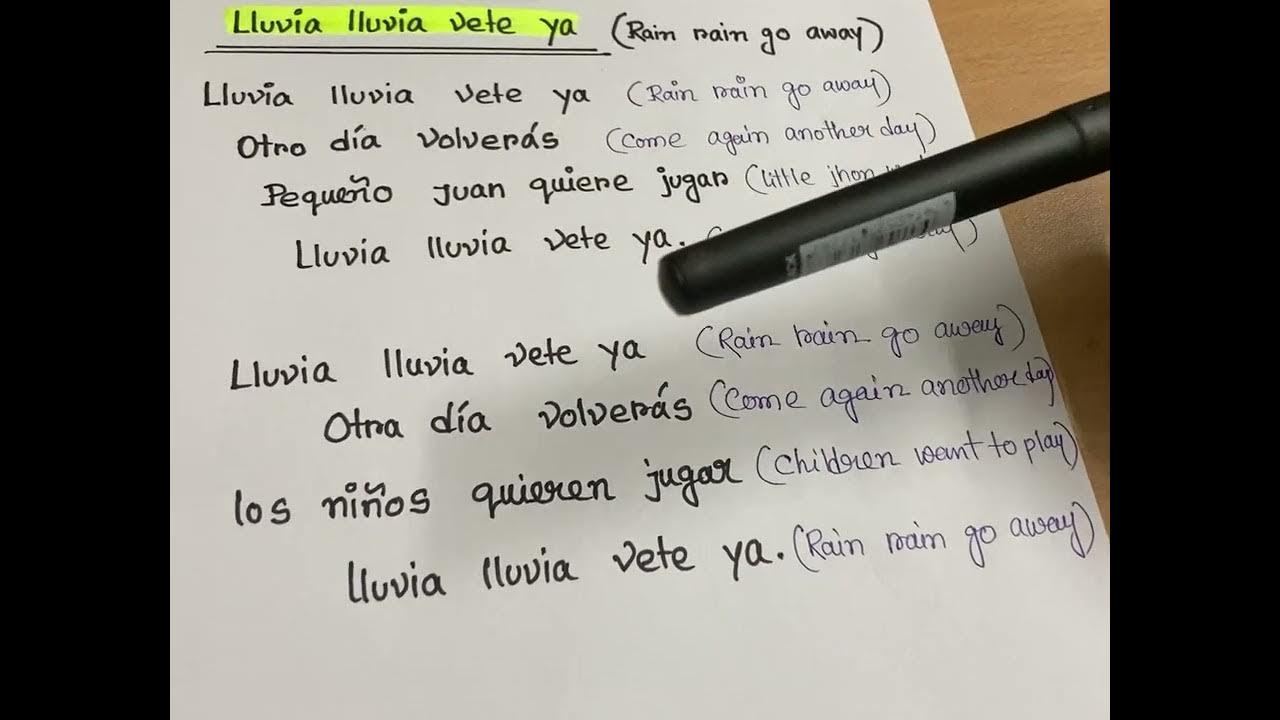 Lluvia lluvia vete ya (Rain rain go away)
Lluvia lluvia vete ya (Rain rain go away)
Otro día volverás (come again another day)
Pequeño Juan quiere jugar (little jhon
Lluvia lluvia vete ya.
Lluvia lluvia vete ya (Rain rain go away)
Otra día volverás (come again another day)
los niños quieren jugar (children want to play)
lluvia lluvia vete ya. (Rain rain go away)